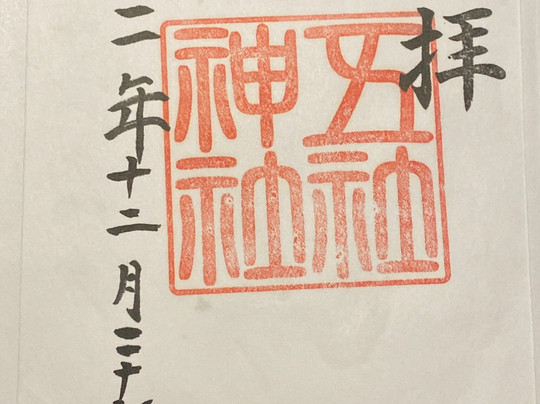 拝
五社
神社
二年十二月二十